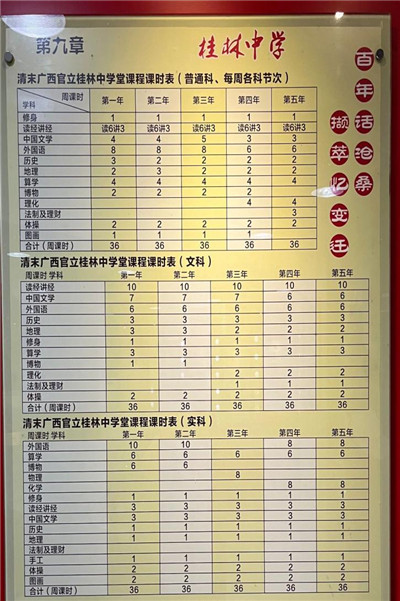 第九章
桂林中学
百年话沧桑
撷萃忆变迁
清末广西官立桂林中学堂课程课时表（普通科、每周各科节次）
周课时 学科 第一年 第二年 第三年 第四年 第五年
修身 1 1 1 1 1
读经讲经 读6讲3 读6讲3 读6讲3 读6讲3 读6讲3
中国文学 4 4 5 3 3
外国语 8 8 8 6 6
历史 3 2 2 2 2
地理 2 3 2 2 2
算学 4 4 4 4 4
博物 2 2 2 2
理化 4 4
法制及理财 3
体操 2 2 2 2 2
图画 1 1 1 1
合计（周课时） 36 36 36 36 36
清末广西官立桂林中学堂课程课时表（文科）
周课时 学科 第一年 第二年 第三年 第四年 第五年
读经讲经 10 10 10 10 10
中国文学 7 7 7 6 6
外国语 6 6 6 6 6
历史 3 3 3 3 3
地理 3 3 2 2 2
修身 1 1 1 1 1
算学 3 3 3 3 3
博物 1 1
理化 2 2 2
法制及理财 1 1
体操 2 2 2 2 2
合计（周课时） 36 36 36 36 36
清末广西官立桂林中学堂课程课时表（实科）
周课时 学科 第一年 第二年 第三年 第四年 第五年
外国语 10 10 8 8
算学 6 6 6 6 6
博物 6 6
物理 8
化学 8 8
修身 1 1 1 1 1
读经讲经 3 3 3 3 3
中国文学 3 3 3 3 3
历史 1 1 1 1 1
地理 1 1 1 1 1
法制及理财
手工 1 1 1 1 1
体操 2 2 2 2 2
图画 2 2 2 2 2
合计（周课时） 36 36 36 36 36